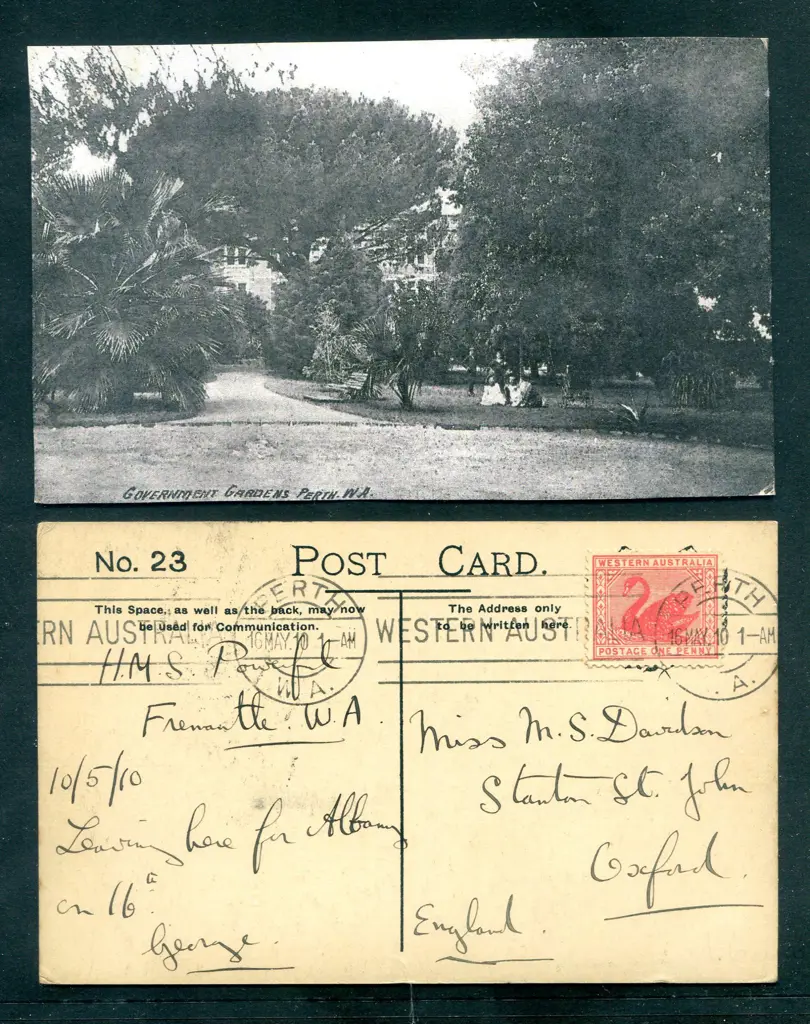 GOVERNMENT GARDENS PERTH. W.A.
No. 23
POST CARD.
This Space, as well as the back, may now
be used for Communication.
The Address only
to be written here.
WESTERN AUSTRALIA
POSTAGE ONE PENNY
RN AUSTRALIA
PERTH
16 MAY. 10 1-AM
W.A.
WESTERN AUSTRALIA
PERTH
16 MAY. 10 1-AM
.A.
H.M.S. Powerful
Fremantle. W.A.
10/5/10
Leaving here for Albany
on 16
George.
Miss M. S. Davidson
Stanton St. John
Oxford.
England.